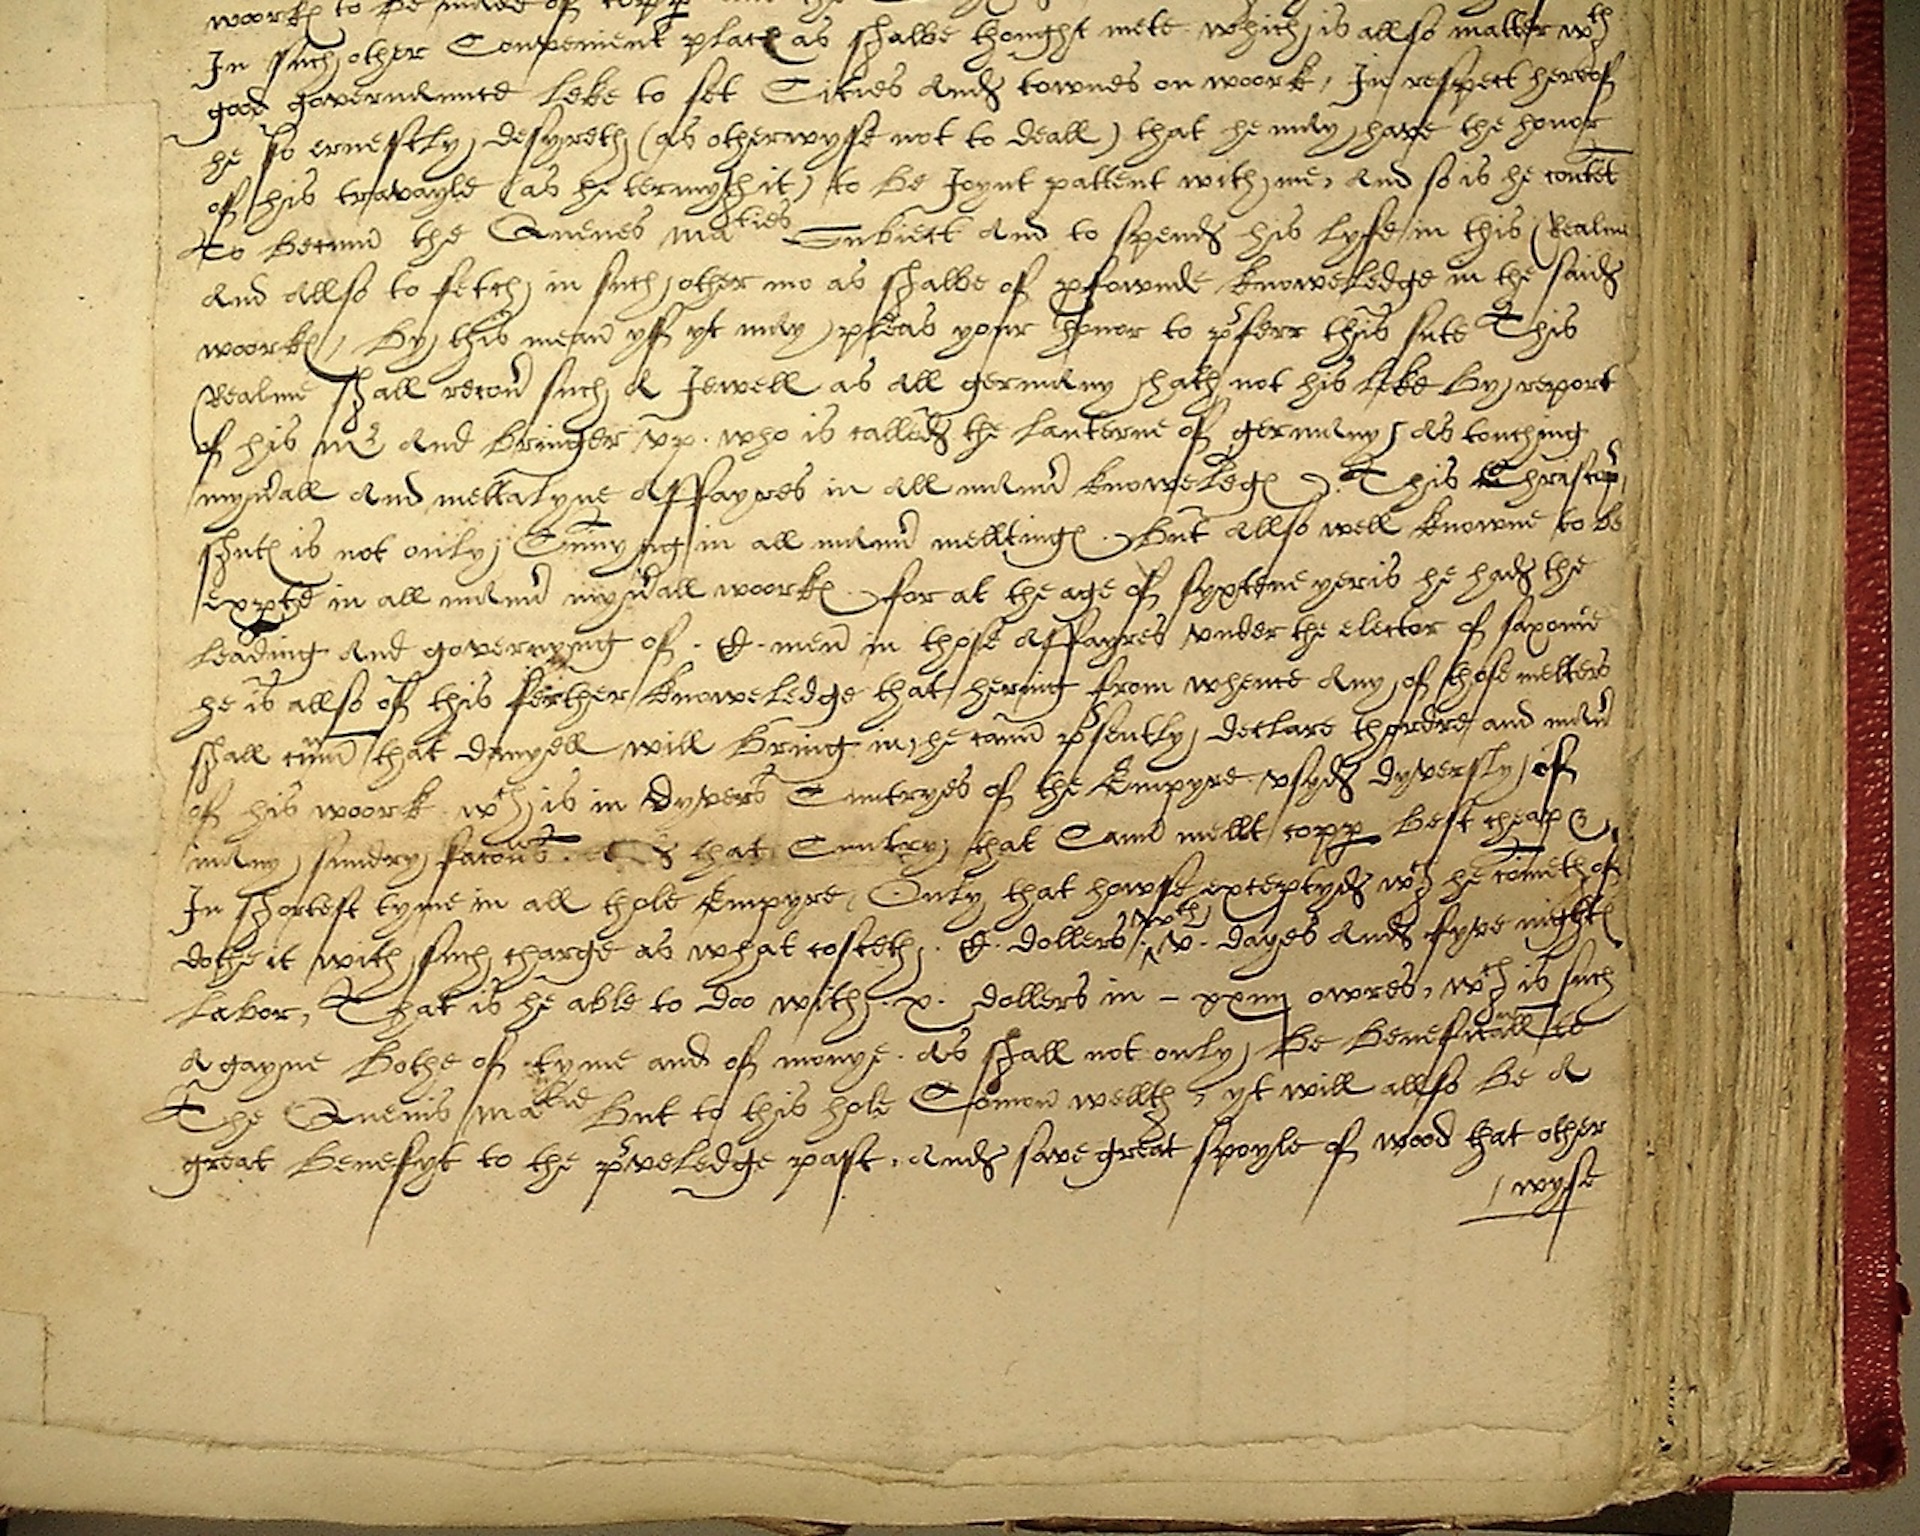 woork to be made of copp
In such other Convenient place as shalbe thought mete which is allso matter wth
good governaunce leke to set Cities and townes on woork, In respect herof
he so ernestly desyreth (as otherwyse not to deall) that he may have the honor
of his travayle (as he termyth it) to be Joynt pattent with me, and so is he contēt
to becum the Quenes maties Subiect and to spend his lyfe in this Realme
And allso to fetch in such other mo as shalbe of pfownde knoweledge in the said
woork, By this mean yff yt may pleas your honor to pferr this sute This
Realme shall recou such a Jewell as all germany hath not his leke by report
of his mr and bringer vp. who is called the Lanterne of germany / as touching
mynall and mettalyne affayres in all man knoweleg). This Christop
shutz is not only Cūnyng in all man melting. But allso well knowne to be
expte in all man mynall woork. for at the age of syxtene yeris he had the
leading and governyng of . C . men in those affayres vnder the elector of saxonie
he is allso of this ferther knoweledge that hering from whence any of those melters
shall cum that danyell will bring in, he cann psently declare thordre and man
of his woork. wch is in dyvers Cuntryes of the Empyre vsyd dyversly of
many sundry facons. and that Cuntry that Cann mellt copp best cheap &
In shortest tyme in all thole Empyre, Only that howse exceptyd wch he cōmeth of
dothe it with such charge as what costeth . C . dollers wth . v . dayes and fyve night
labor, That is he able to doo with . x . dollers in – xxiiij owres, wch is such
a gayne bothe of tyme and of monye. as shall not only be beneficiall to
The Quenis matie But to this hole Comon wellth, yt will allso be a
great benefyt to the pveledge past, and save great spoyle of wood that other
/ wyse